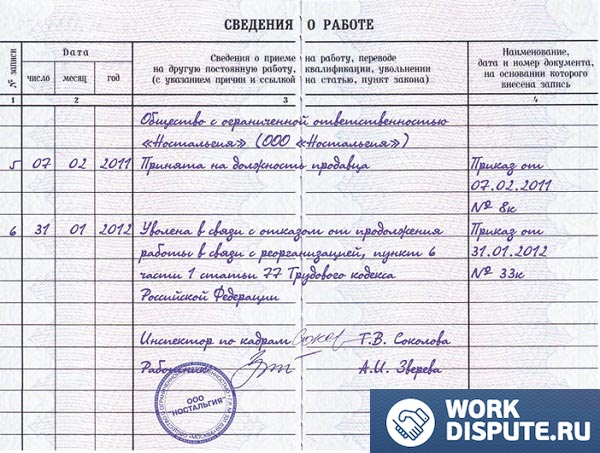 СВЕДЕНИЯ О РАБОТЕ
№ записи
Дата
число месяц год
Сведения о приеме на работу, переводе
на другую постоянную работу, квалификации, увольнении
(с указанием причин и ссылкой на статью, пункт закона)
Наименование,
дата и номер документа,
на основании которого
внесена запись
1 2 3 4
Общество с ограниченной ответственностью
«Ностальгия» (ООО «Ностальгия»)
5 07 02 2011 Принята на должность продавца Приказ от
07.02.2011
№ 8к
6 31 01 2012 Уволена в связи с отказом от продолжения Приказ от
работы в связи с реорганизацией, пункт 6 31.01.2012
части 1 статьи 77 Трудового кодекса № 33к
Российской Федерации
Инспектор по кадрам Т.В. Соколова
Работник А.И. Зверева
ООО
НОСТАЛЬГИЯ
WORK
DISPUTE.RU